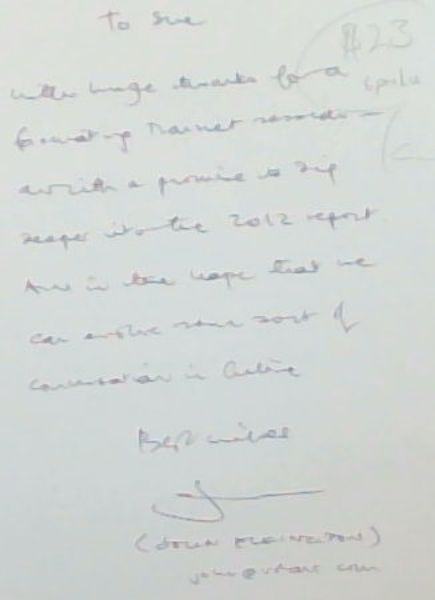 To Sue
$23
with huge thanks for a
fascinating
and with a promise to dig
deeper into the 2012 report
And in the hope that we
can evolve some sort of
conversation in
Best wishes
(JOHN ELKINGTON)